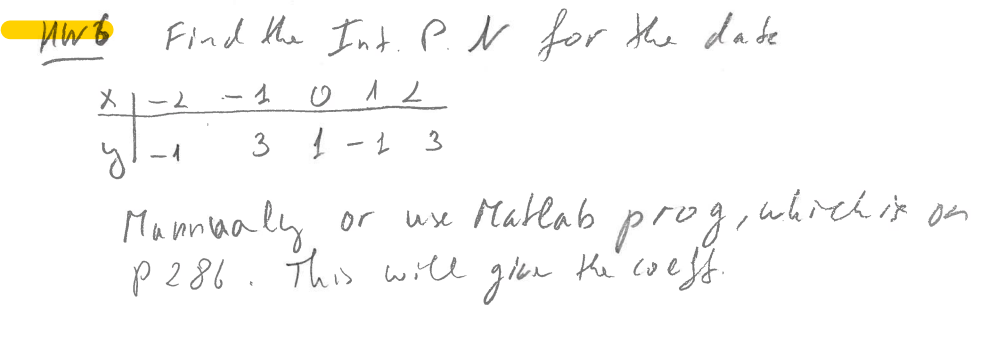 HW6 Find the Int. P. N for the date
x | -2 -1 0 1 2
y | -1 3 1 -1 3
Mannualy or use Matlab prog, which is on
p 286. This will give the coeff.